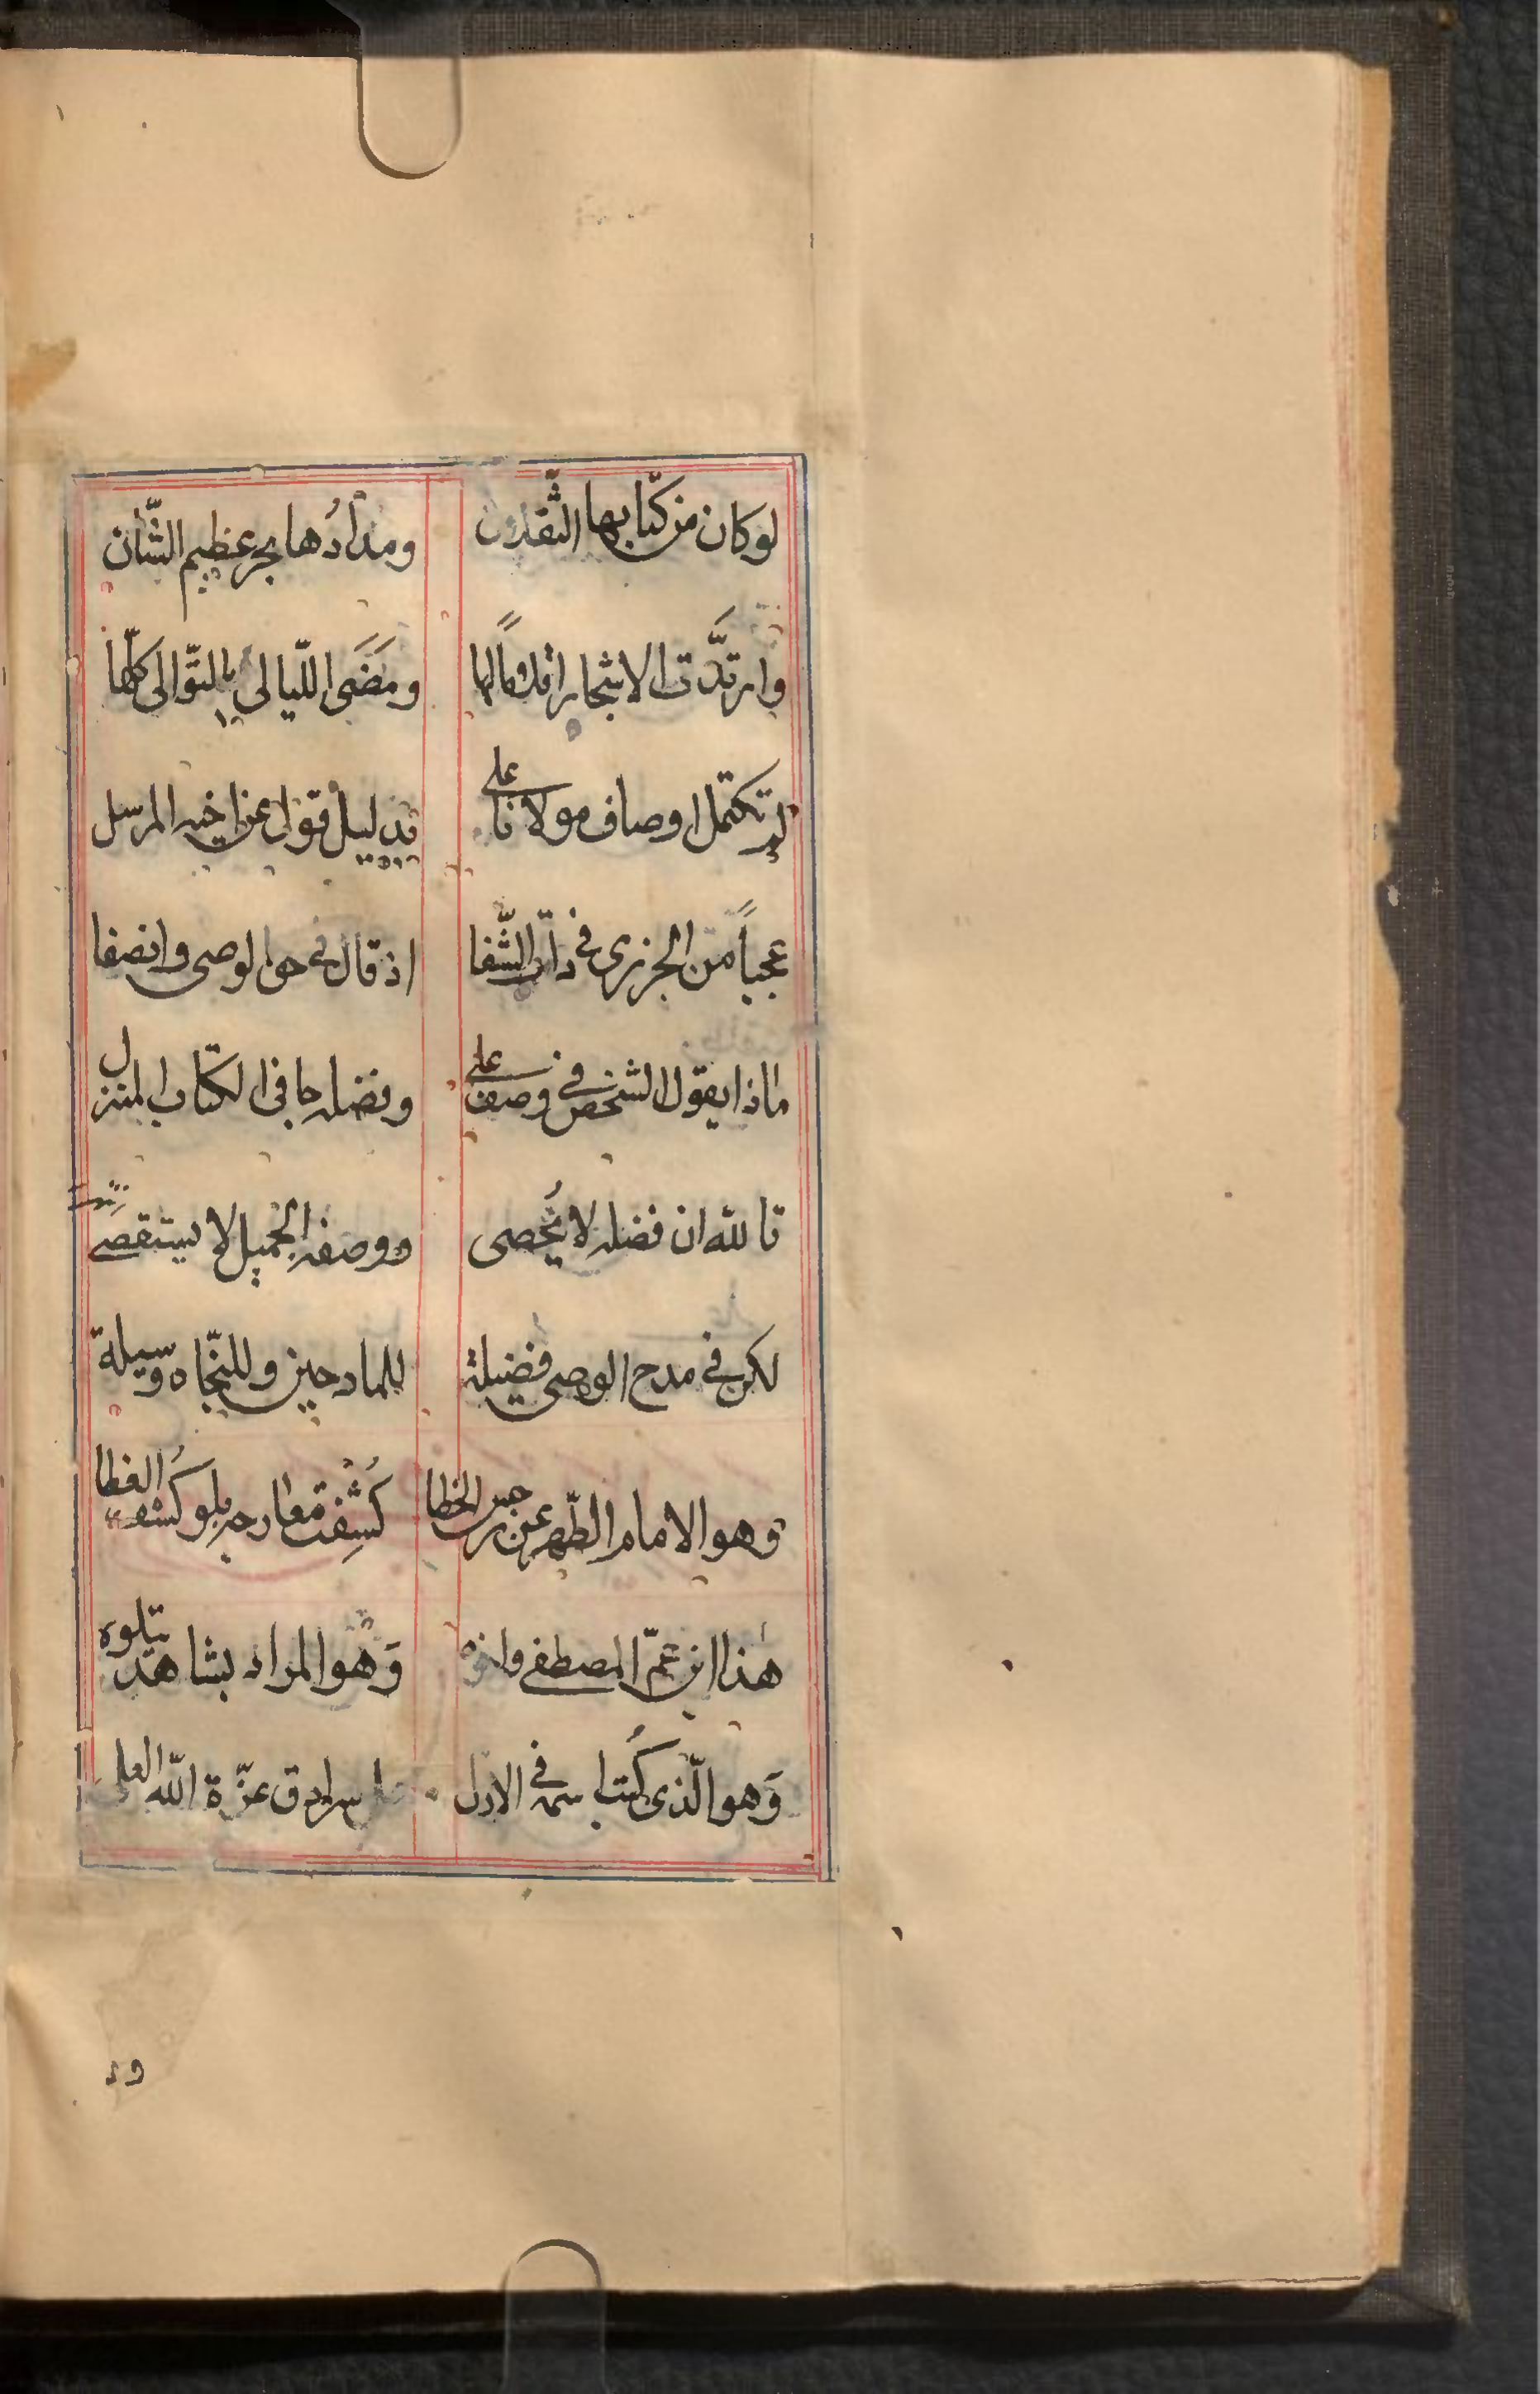 لوكان من كتّابها الثّقلان ومدادُها بحر عظيم الشّان
وارتدّت الاشجار اقلاماً لها ومَضَى اللّيالى بالتّوالى كلّها
لم تكتمل اوصاف مولانا على بدليل قول عن اخيه المرسل
عجباً من الجزرى فى ذات الشّفا اذ قال فى حق الوصى وانصفا
ماذا يقول الشخص فى وصف على وفضله جا فى الكتاب المنزل
تالله ان فضله لا يُحصى ووصفه الجميل لا يستقصى
لكن فى مدح الوصى فضيلة للمادحين وللنجّاه وسيلة
وهو الامام الطّهر عن رجس الخطا كُشِفت معارجه بلو كُشف الغطا
هذا ابن عمّ المصطفى واخوه وَهو المراد بشاهد يتلوه
وَهو الّذى كُتب اسمه فى الازل سرادق عزّة الله العلى